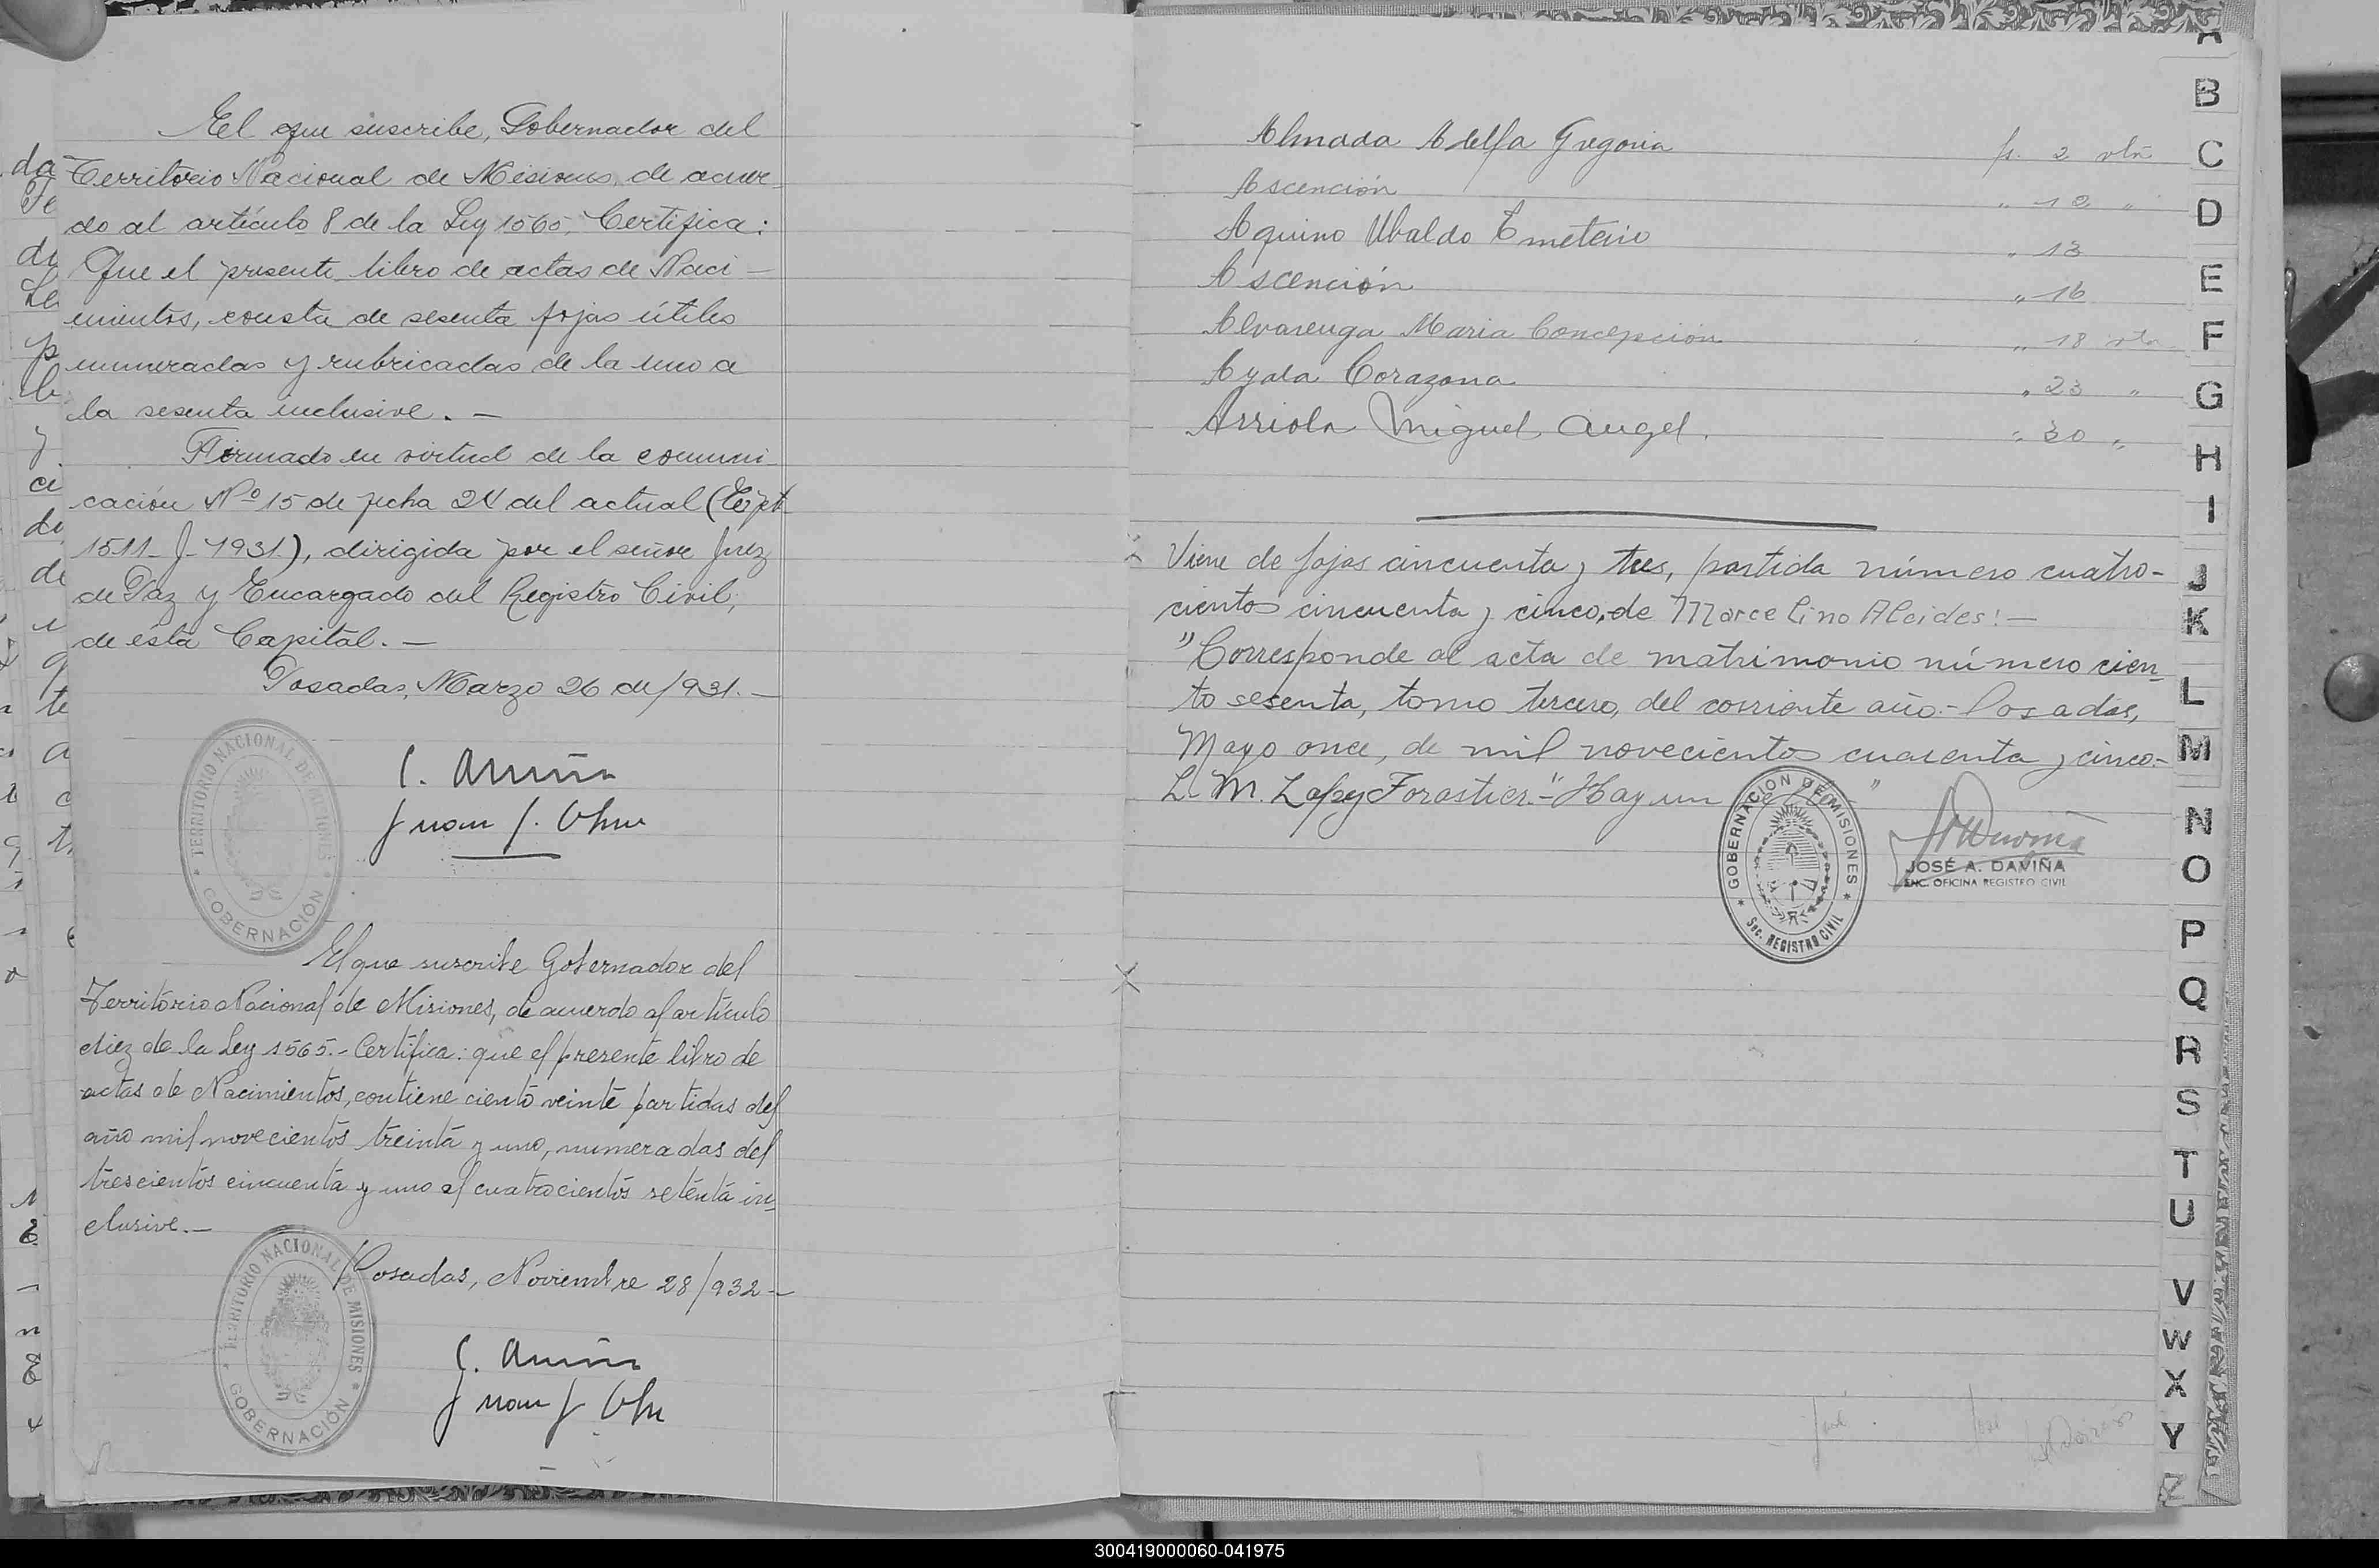 El que suscribe, Gobernador del
Territorio Nacional de Misiones, de acuer-
do al artículo 8 de la Ley 1565, Certifica:
Que el presente libro de actas de Naci-
mientos, consta de sesenta fojas útiles
numeradas y rubricadas de la uno a
la sesenta inclusive. -
Firmado en virtud de la comuni-
cación Nº 15 de fecha 24 del actual (Expte
1511-J-1931), dirigida por el señor Juez
de Paz y Encargado del Registro Civil,
de ésta Capital. -
Posadas, Marzo 26 de/931. -
TERRITORIO NACIONAL DE MISIONES
GOBERNACIÓN
El que suscribe Gobernador del
Territorio Nacional de Misiones, de acuerdo al artículo
diez de la Ley 1565.- Certifica: que el presente libro de
actas de Nacimientos, contiene ciento veinte partidas del
año mil novecientos treinta y uno, numeradas del
trescientos cincuenta y uno al cuatrocientos setenta in-
clusive.-
Posadas, Noviembre 28/932-
TERRITORIO NACIONAL DE MISIONES
GOBERNACIÓN
Almada Adelfa Gregoria f. 2 vta
Ascención " 12 "
Aquino Ubaldo Emeterio " 13
Ascención " 16
Alvarenga Maria Concepción " 18 vta
Ayala Corazona " 23 "
Arriola Miguel Angel. " 30 "
Viene de fojas cincuenta y tres, partida número cuatro-
cientos cincuenta y cinco, de Marcelino Alcides:-
"Corresponde al acta de matrimonio número cien-
to sesenta, tomo tercero, del corriente año.- Posadas,
Mayo once, de mil novecientos cuarenta y cinco.-
L. M. Forastier.-" Hay un "
GOBERNACION DE MISIONES
Sec. REGISTRO CIVIL
JOSÉ A. DAVIÑA
ENC. OFICINA REGISTRO CIVIL
B
C
D
E
F
G
H
I
J
K
L
M
N
O
P
Q
R
S
T
U
V
W
X
Y
Z
300419000060-041975